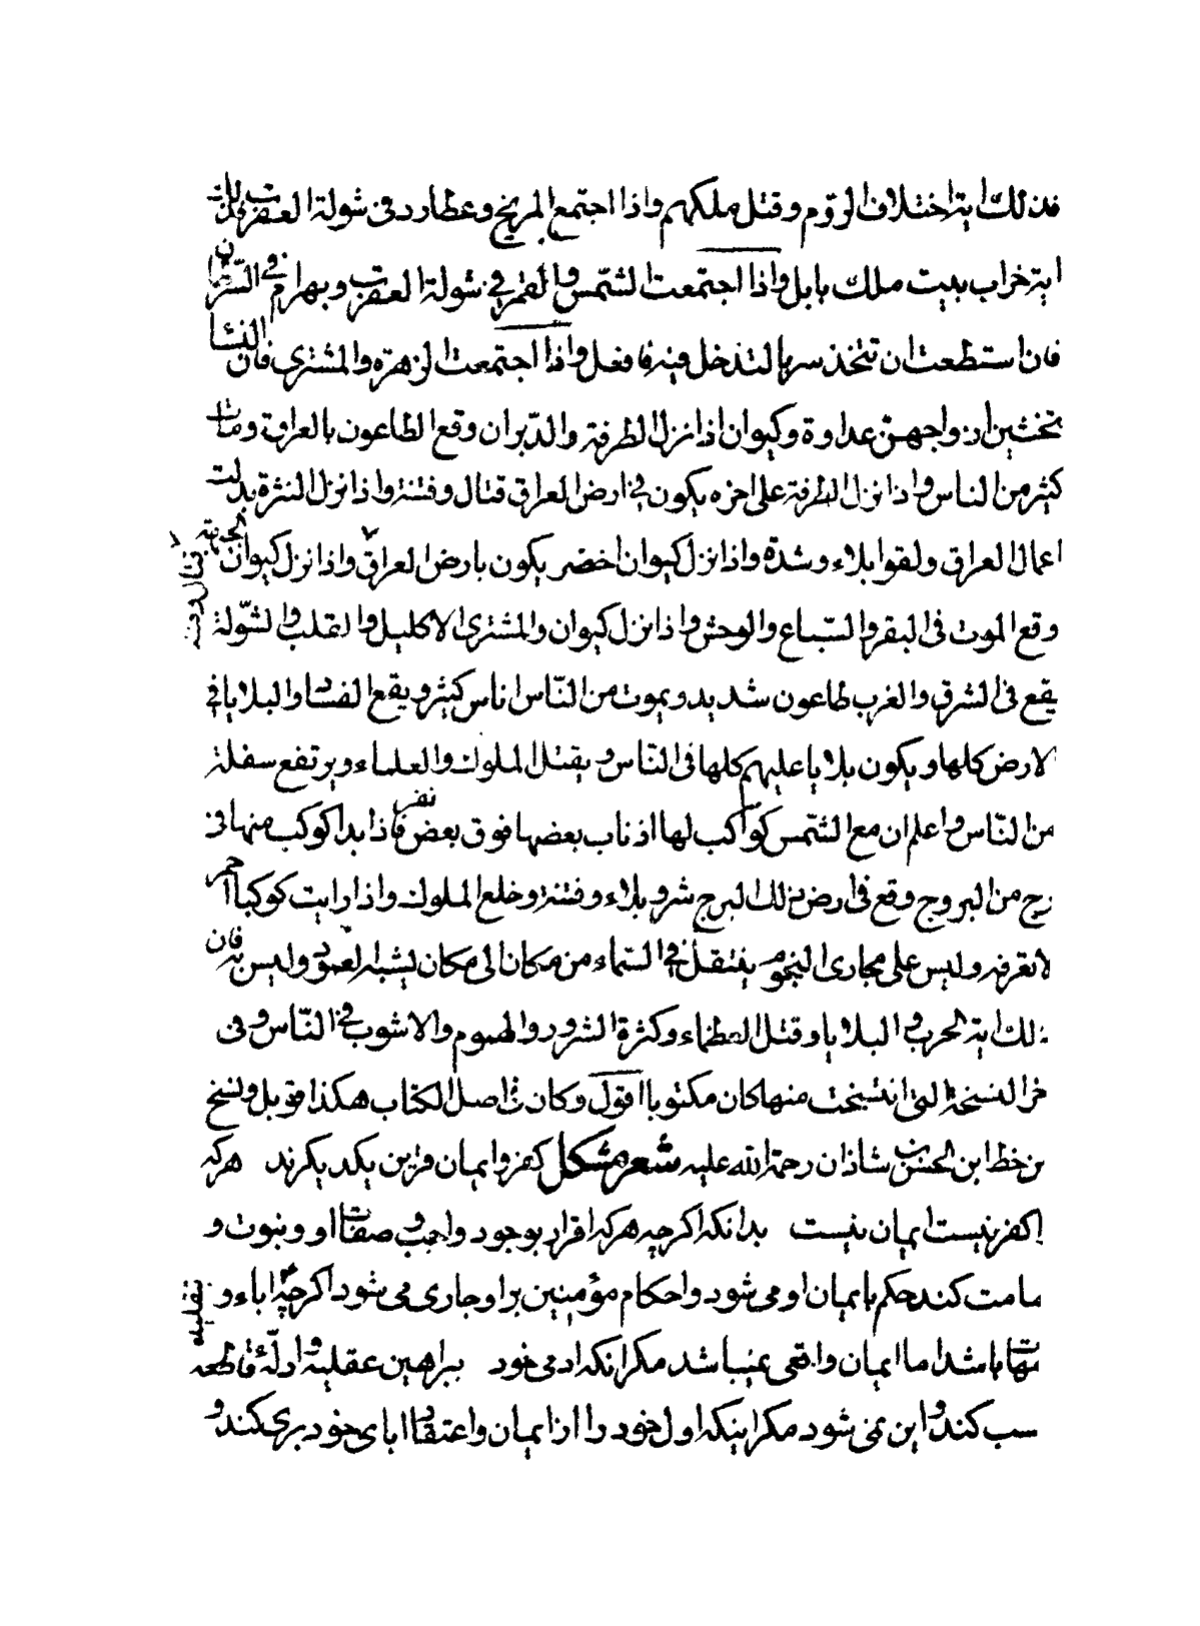 فذلك اية اختلاف الروم وقتل ملكهم واذا اجتمع المريخ وعطارد فى شولة العقرب فذلك
اية خراب بيت ملك بابل واذا اجتمعت الشمس والقمر فى شولة العقرب وبهرام فى السرطان
فان استطعت ان تتخذ سربا لتدخل فيه فافعل واذا اجتمعت الزهرة والمشترى فان النساء
تخشين ازواجهن عداوة وكيوان اذا نزل الطرفة والدبران وقع الطاعون بالعراق ومات
كثير من الناس واذا نزل الطرفة على اخره يكون فى ارض العراق قتال وفتنة واذا نزل النثرة بدلت
اعمال العراق ولقوا بلاء وشدة واذا نزل كيوان اخضر يكون بارض العراق واذا نزل كيوان الجبهة
قتال وفتنة
وقع الموت فى البقر والسباع والوحش واذا نزل كيوان والمشترى الاكليل والقلب والشولة
يقع فى الشرق والغرب طاعون شديد ويموت من الناس اناس كثير ويقع الفساد والبلايا فى
الارض كلها ويكون بلايا عليهم كلها فى الناس ويقتل الملوك والعلماء ويرتفع سفلة
من الناس واعلم ان مع الشمس كواكب لها اذناب بعضها فوق بعض فاذا بدا كوكب منها فى
رج من البروج وقع فى ارض ذلك البرج شر وبلاء وفتنة وخلع الملوك واذا رايت كوكبا احمر
لا تعرفه وليس على مجارى النجوم ينتقل فى السماء من مكان الى مكان يشبه العمود وليس به فان
ذلك اية الحرب والبلايا وقتل العظماء وكثرة الشرور والهموم والاشوب فى الناس وفى
خر النسخة التى انتسخت منها كان مكتوبا اقول وكان فى اصل الكتاب هكذا قوبل ونسخ
من خط ابن الحسن بن شاذان رحمة الله عليه شعر مشكل كفر وايمان قرين يكديكرند هركه
را كفر نيست ايمان نيست بدانكه اكرچه هركه اقرار بوجود واجب وصفات او ونبوت و
مامت كند حكم بايمان او مى شود واحكام مؤمنين بر او جارى مى شود اكرچه اباء و
تقليد
باشد اما ايمان واقعى نميباشد مكر انكه ادمى خود ببراهين عقليه وادلّهٔ قاطعه
سب كند واين نمى شود مكر اينكه اول خود را از ايمان واعتقاد اباى خود برى كند و